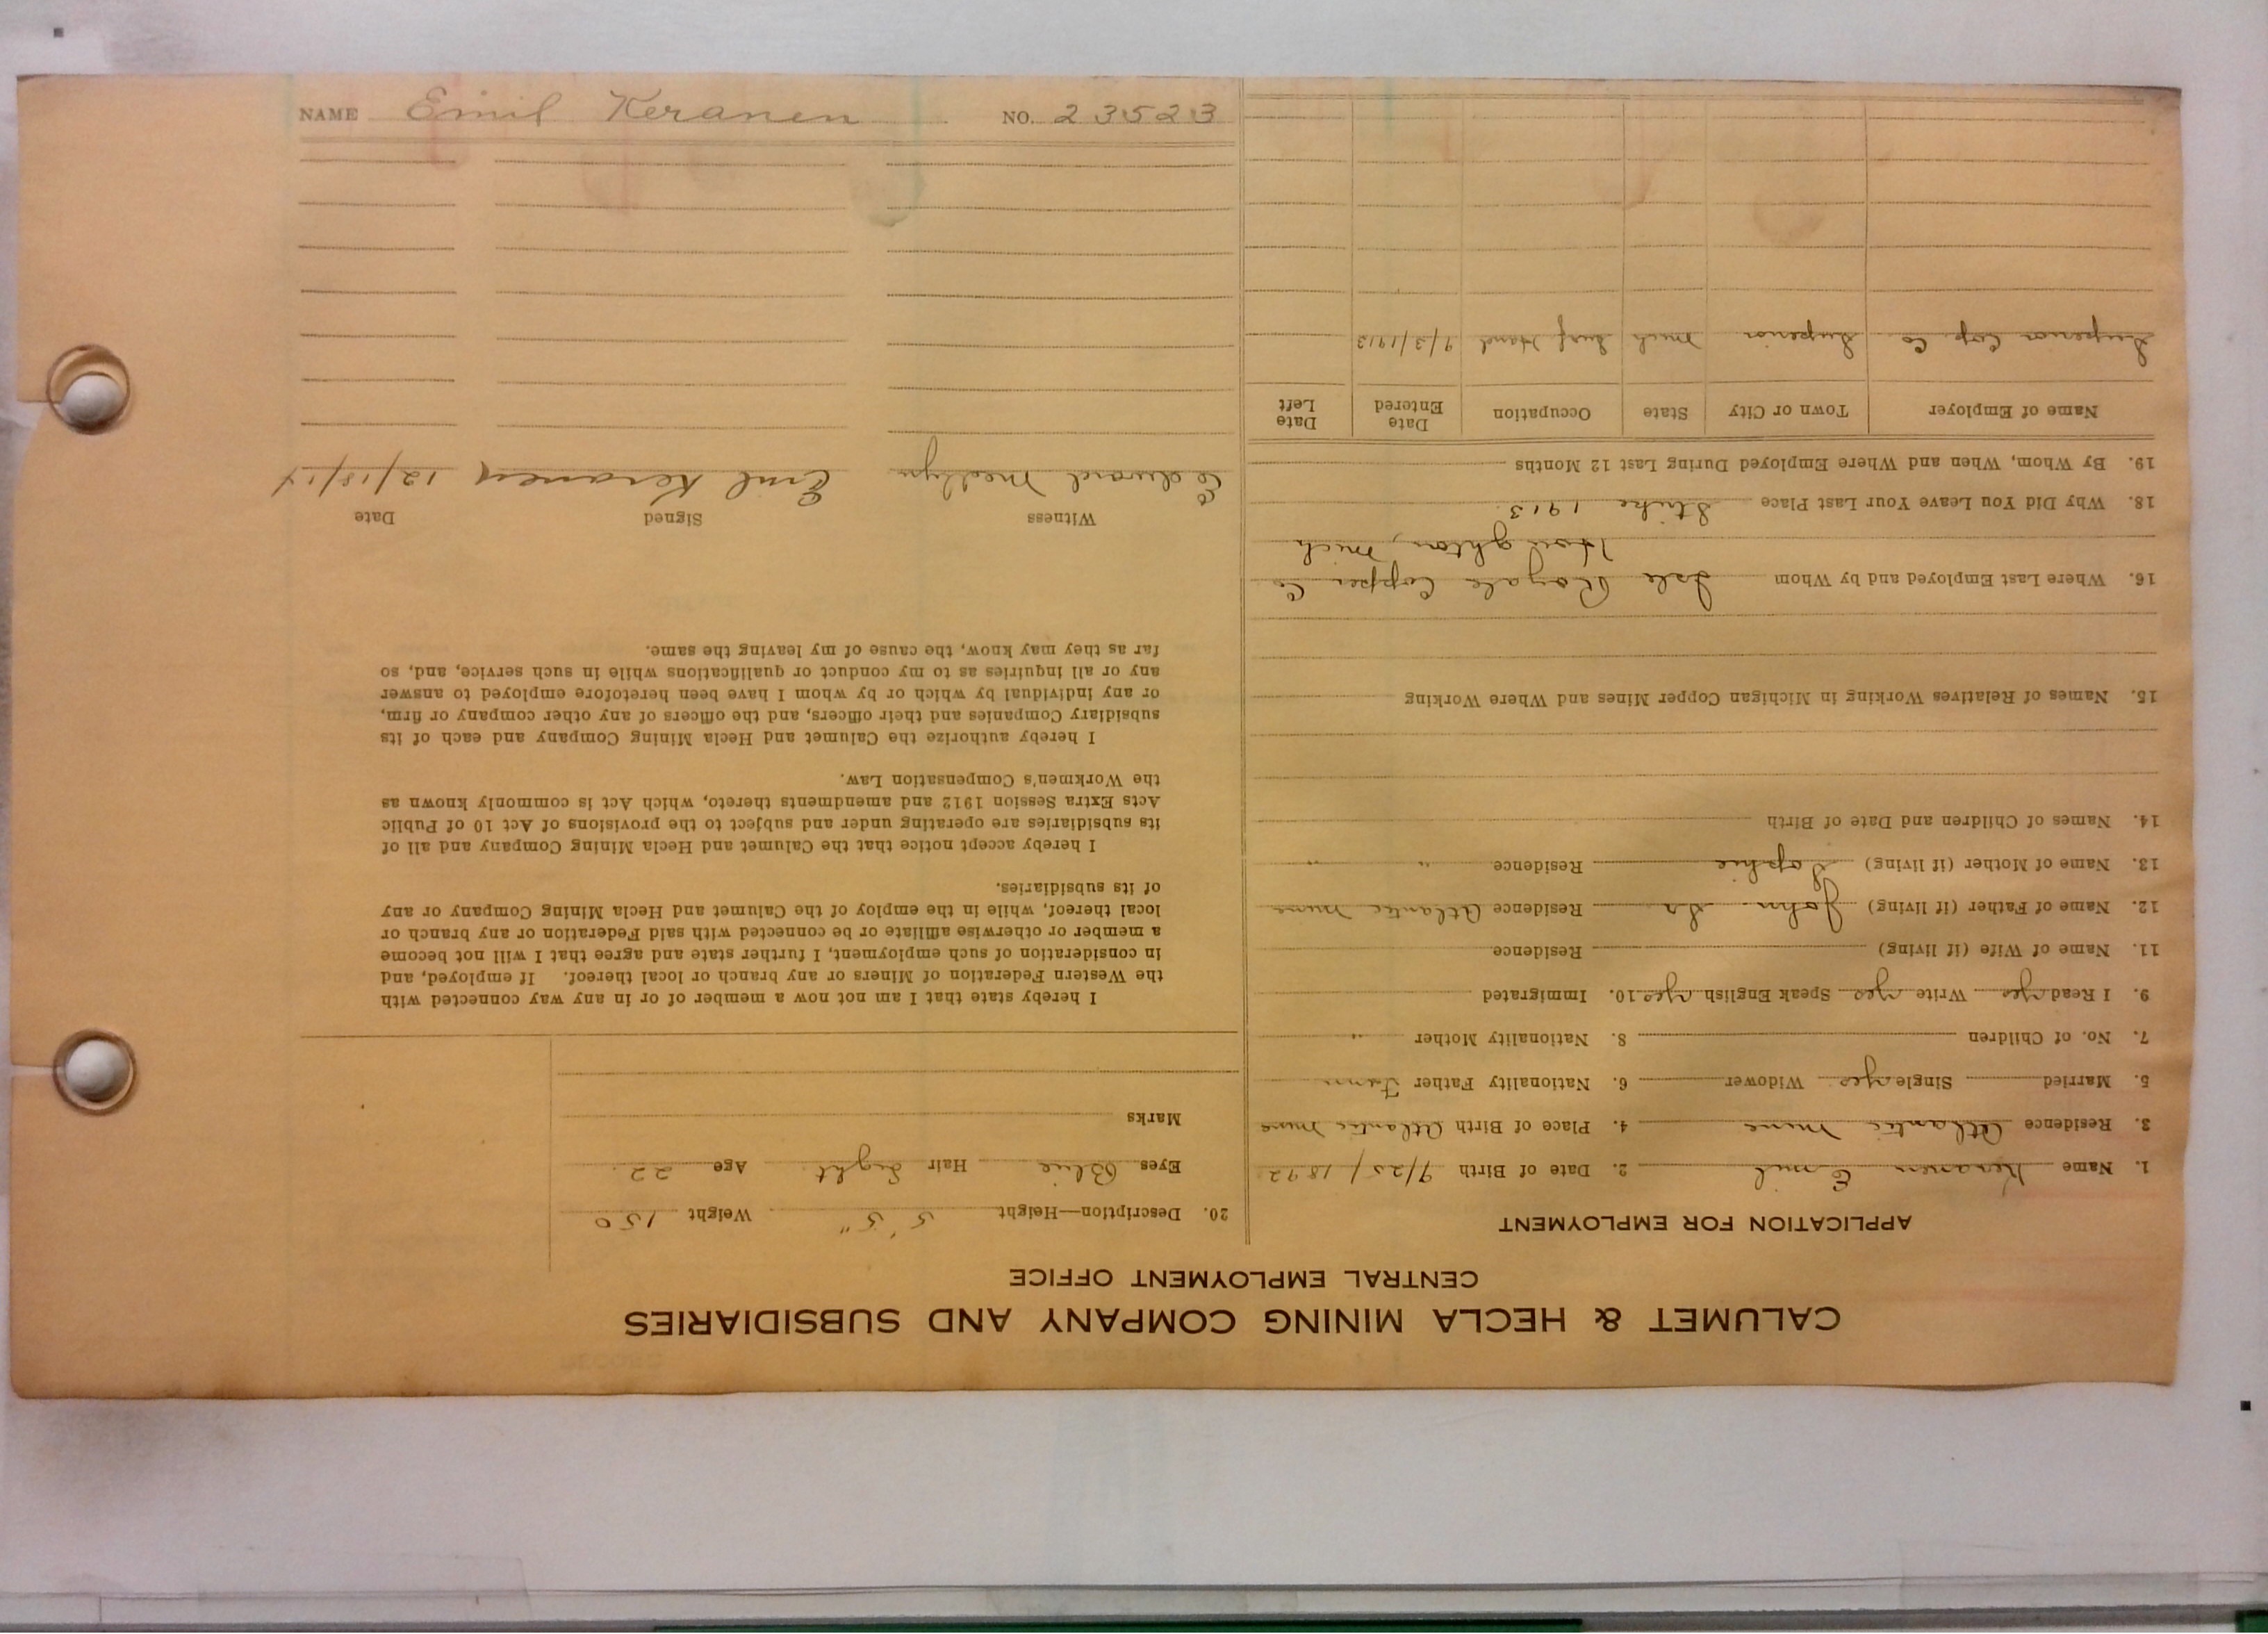 CALUMET & HECLA MINING COMPANY AND SUBSIDIARIES
CENTRAL EMPLOYMENT OFFICE
APPLICATION FOR EMPLOYMENT
1. Name Keranen Emil 2. Date of Birth 9/25/1892
3. Residence Atlantic Mine 4. Place of Birth Atlantic Mine
5. Married Single yes Widower 6. Nationality Father Finn
7. No. of Children 8. Nationality Mother "
9. I Read yes Write yes Speak English yes 10. Immigrated
11. Name of Wife (if living) Residence
12. Name of Father (if living) John Sr Residence Atlantic Mine
13. Name of Mother (if living) Sophie Residence " "
14. Names of Children and Date of Birth
15. Names of Relatives Working in Michigan Copper Mines and Where Working
16. Where Last Employed and by Whom Isle Royale Copper Co
Houghton, Mich
18. Why Did You Leave Your Last Place Strike 1913.
19. By Whom, When and Where Employed During Last 12 Months
Name of Employer Town or City State Occupation Date Entered Date Left
Superior Cop. Co Superior Mich Surf Hand 9/3/1913
20. Description—Height 5' 5" Weight 150
Eyes Blue Hair Light Age 22
Marks
I hereby state that I am not now a member of or in any way connected with
the Western Federation of Miners or any branch or local thereof. If employed, and
in consideration of such employment, I further state and agree that I will not become
a member or otherwise affiliate or be connected with said Federation or any branch or
local thereof, while in the employ of the Calumet and Hecla Mining Company or any
of its subsidiaries.
I hereby accept notice that the Calumet and Hecla Mining Company and all of
its subsidiaries are operating under and subject to the provisions of Act 10 of Public
Acts Extra Session 1912 and amendments thereto, which Act is commonly known as
the Workmen's Compensation Law.
I hereby authorize the Calumet and Hecla Mining Company and each of its
subsidiary Companies and their officers, and the officers of any other company or firm,
or any individual by which or by whom I have been heretofore employed to answer
any or all inquiries as to my conduct or qualifications while in such service, and, so
far as they may know, the cause of my leaving the same.
Witness Signed Date
Edward Medlyn Emil Keranen 12/18/14
NAME Emil Keranen NO. 23523